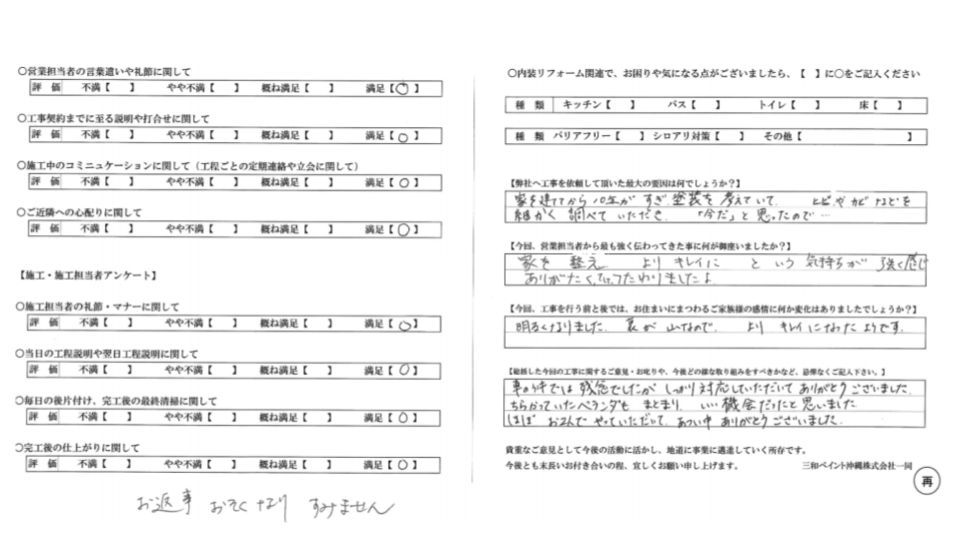 〇営業担当者の言葉遣いや礼節に関して
評 価 不満【 】 やや不満【 】 概ね満足【 】 満足【〇】
〇工事契約までに至る説明や打合せに関して
評 価 不満【 】 やや不満【 】 概ね満足【 】 満足【〇】
〇施工中のコミニュケーションに関して（工程ごとの定期連絡や立会に関して）
評 価 不満【 】 やや不満【 】 概ね満足【 】 満足【〇】
〇ご近隣への心配りに関して
評 価 不満【 】 やや不満【 】 概ね満足【 】 満足【〇】
【施工・施工担当者アンケート】
〇施工担当者の礼節・マナーに関して
評 価 不満【 】 やや不満【 】 概ね満足【 】 満足【〇】
〇当日の工程説明や翌日工程説明に関して
評 価 不満【 】 やや不満【 】 概ね満足【 】 満足【〇】
〇毎日の後片付け、完工後の最終清掃に関して
評 価 不満【 】 やや不満【 】 概ね満足【 】 満足【〇】
〇完工後の仕上がりに関して
評 価 不満【 】 やや不満【 】 概ね満足【 】 満足【〇】
お返事 おそくなり すみません
〇内装リフォーム関連で、お困りや気になる点がございましたら、【 】に〇をご記入ください
種 類 キッチン【 】 バス【 】 トイレ【 】 床【 】
種 類 バリアフリー【 】 シロアリ対策【 】 その他【 】
【弊社へ工事を依頼して頂いた最大の要因は何でしょうか？】
家を建ててから10年がすぎ塗装を考えていて、ヒビやカビなどを
細かく調べていただき、「今だ」と思ったので…
【今回、営業担当者から最も強く伝わってきた事に何が御座いましたか？】
家を整え よりキレイに という気持ちが 強く感じ
ありがたく つたわりましたよ
【今回、工事を行う前と後では、お住まいにまつわるご家族様の感情に何か変化はありましたでしょうか？】
明るくなりました。裏が山なので、よりキレイになったようです。
【総括した今回の工事に関するご意見・お叱りや、今後どの様な取り組みをすべきかなど、忌憚なくご記入下さい。】
車の件では残念でしたが しっかり対応していただいてありがとうございました
ちらかっていたベランダも まとまり、いい機会だったと思いました
ほぼ やっていただいて、あつい中ありがとうございました。
貴重なご意見として今後の活動に活かし、地道に事業に邁進していく所存です。
今後とも末長いお付き合いの程、宜しくお願い申し上げます。 三和ペイント沖縄株式会社一同
再